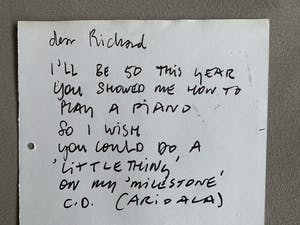 dear Richard
I'LL BE 50 THIS YEAR
YOU SHOWED ME HOW TO
PLAY A PIANO
SO I WISH
YOU COULD DO A
'LITTLE THING'
ON MY 'MILESTONE'
C.D. (ARIDALA)